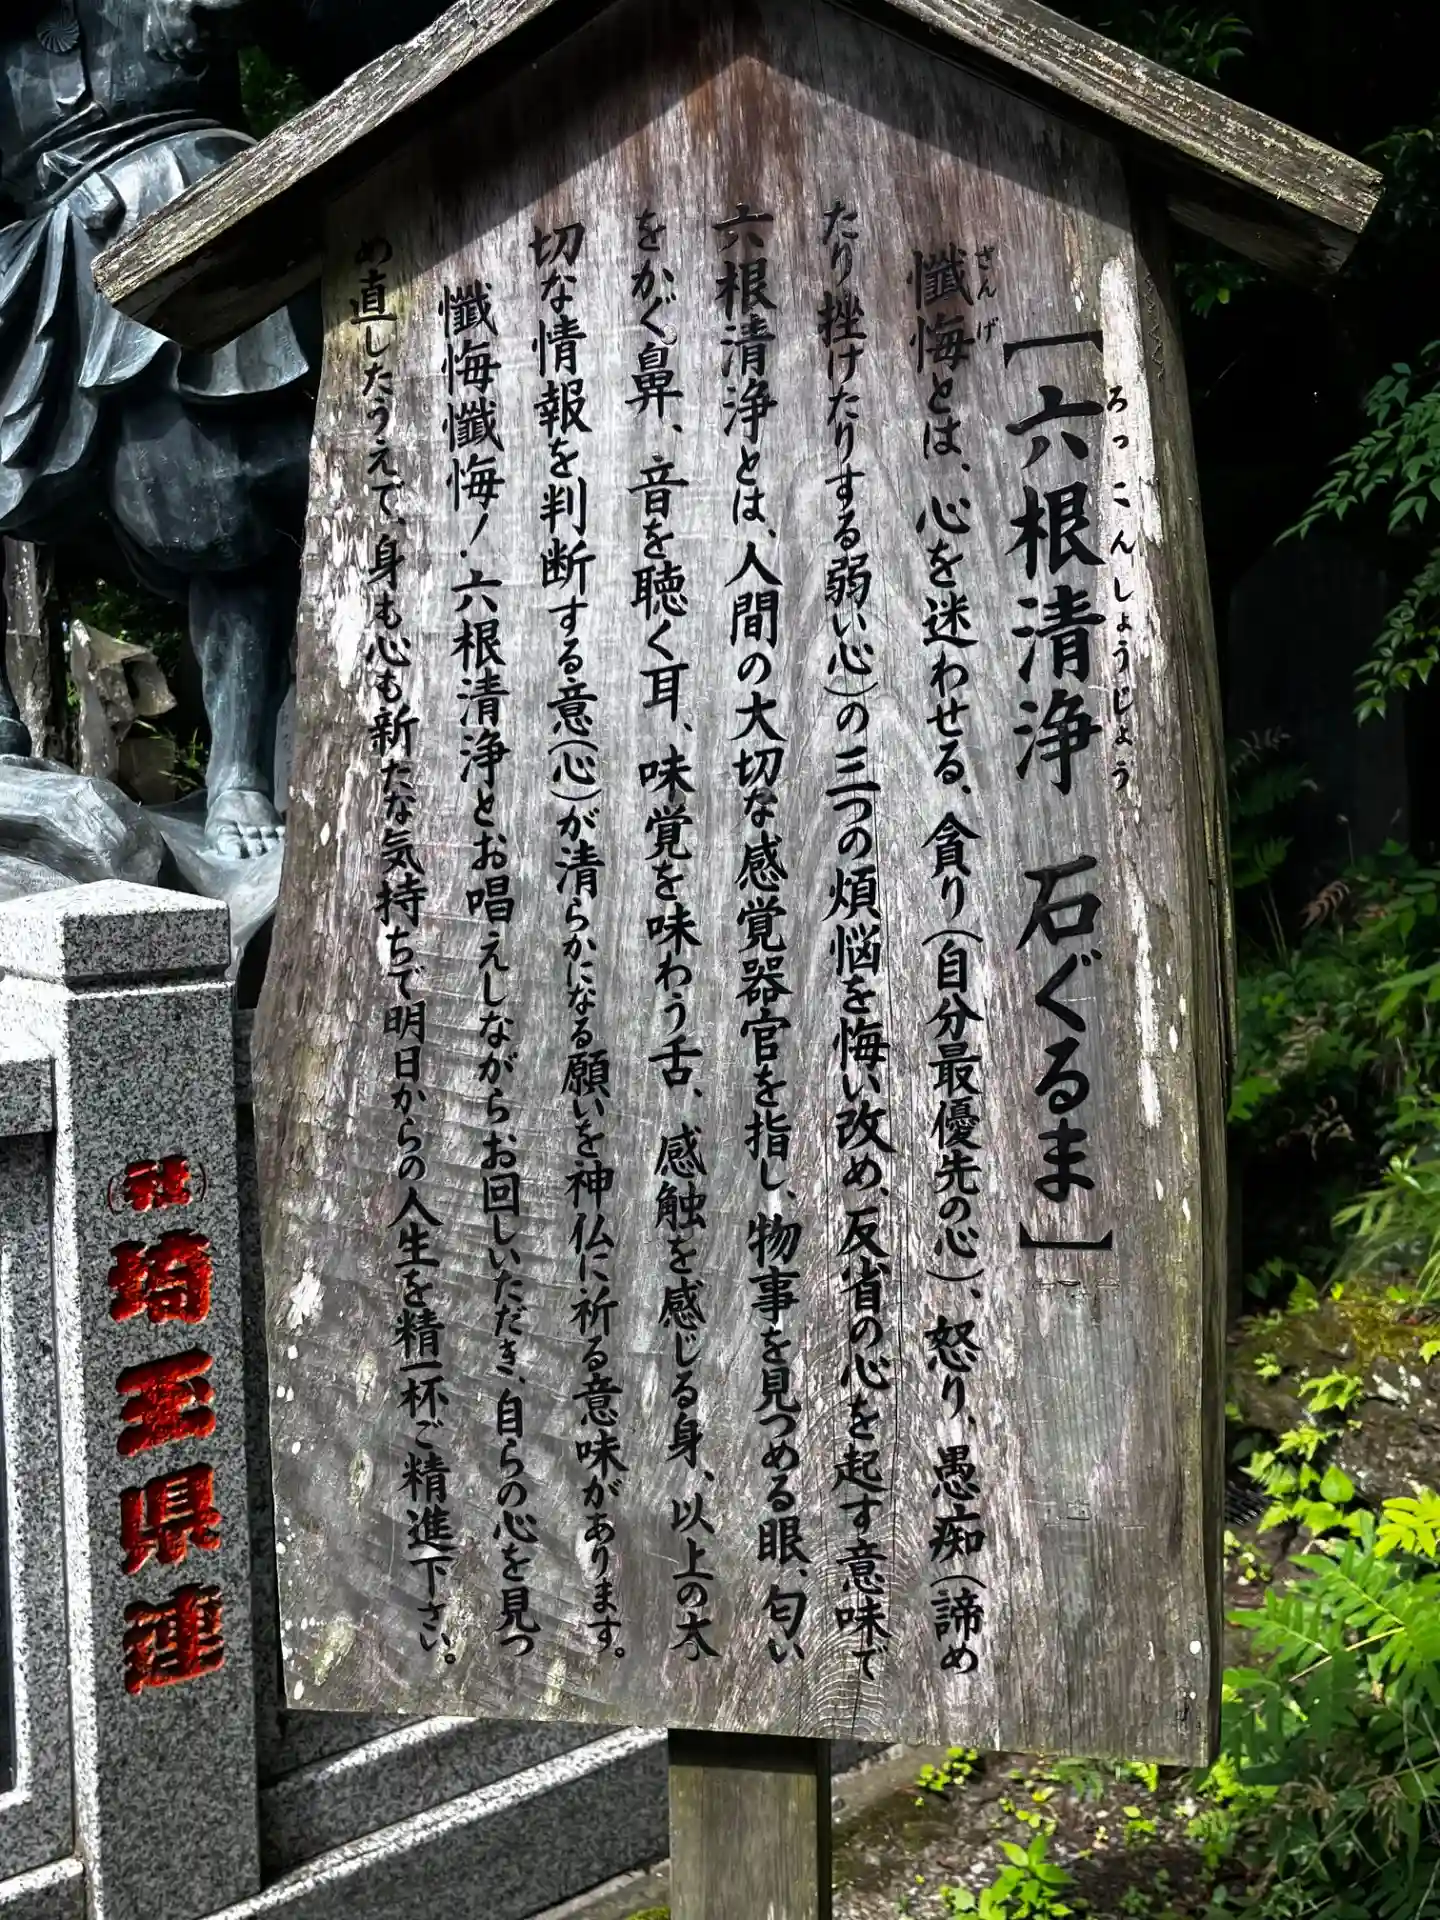 【六根清浄 石ぐるま】
ろっこんしょうじょう
懺悔とは、心を迷わせる、貪り(自分最優先の心)、怒り、愚痴(諦め
ざんげ
たり挫けたりする弱い心)の三つの煩悩を悔い改め、反省の心を起す意味で
六根清浄とは、人間の大切な感覚器官を指し、物事を見つめる眼、匂い
をかぐ鼻、音を聴く耳、味覚を味わう舌、感触を感じる身、以上の大
切な情報を判断する意(心)が清らかになる願いを神仏に祈る意味があります。
懺悔懺悔!六根清浄とお唱えしながらお回しいただき、自らの心を見つ
め直したうえで、身も心も新たな気持ちで明日からの人生を精一杯ご精進下さい。
(社)埼玉県連